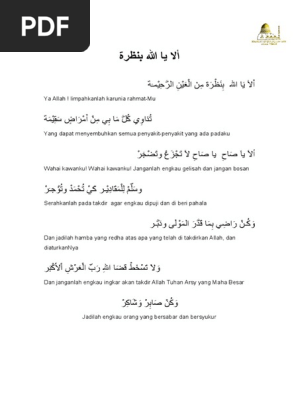 PDF
ألا يا الله بنظرة
أَلَا يَا اللهْ بِنَظْرَة مِنَ الْعَيْنِ الرَّحِيْمَة
Ya Allah ! limpahkanlah karunia rahmat-Mu
تُدَاوِي كُلَّ مَا بِي مِنْ أَمْرَاضٍ سَقِيْمَة
Yang dapat menyembuhkan semua penyakit-penyakit yang ada padaku
أَلَا يَا صَاحِ يَا صَاحِ لَا تَجْزَعْ وَتَضْجَرْ
Wahai kawanku! Wahai kawanku! Janganlah engkau gelisah dan jangan bosan
وَسَلِّمْ لِلْمَقَادِيْر كَيْ تُحْمَدْ وَتُؤْجَرْ
Serahkanlah pada takdir agar engkau dipuji dan di beri pahala
وَكُنْ رَاضِي بِمَا قَدَّرَ الْمَوْلَى وَدَبَّرْ
Dan jadilah hamba yang redha atas apa yang telah di takdirkan Allah, dan
diaturkanNya
وَلَا تَسْخَطْ قَضَا اللهِ رَبِّ الْعَرْشِ الْأَكْبَر
Dan janganlah engkau ingkar akan takdir Allah Tuhan Arsy yang Maha Besar
وَكُنْ صَابِرْ وَشَاكِرْ
Jadilah engkau orang yang bersabar dan bersyukur